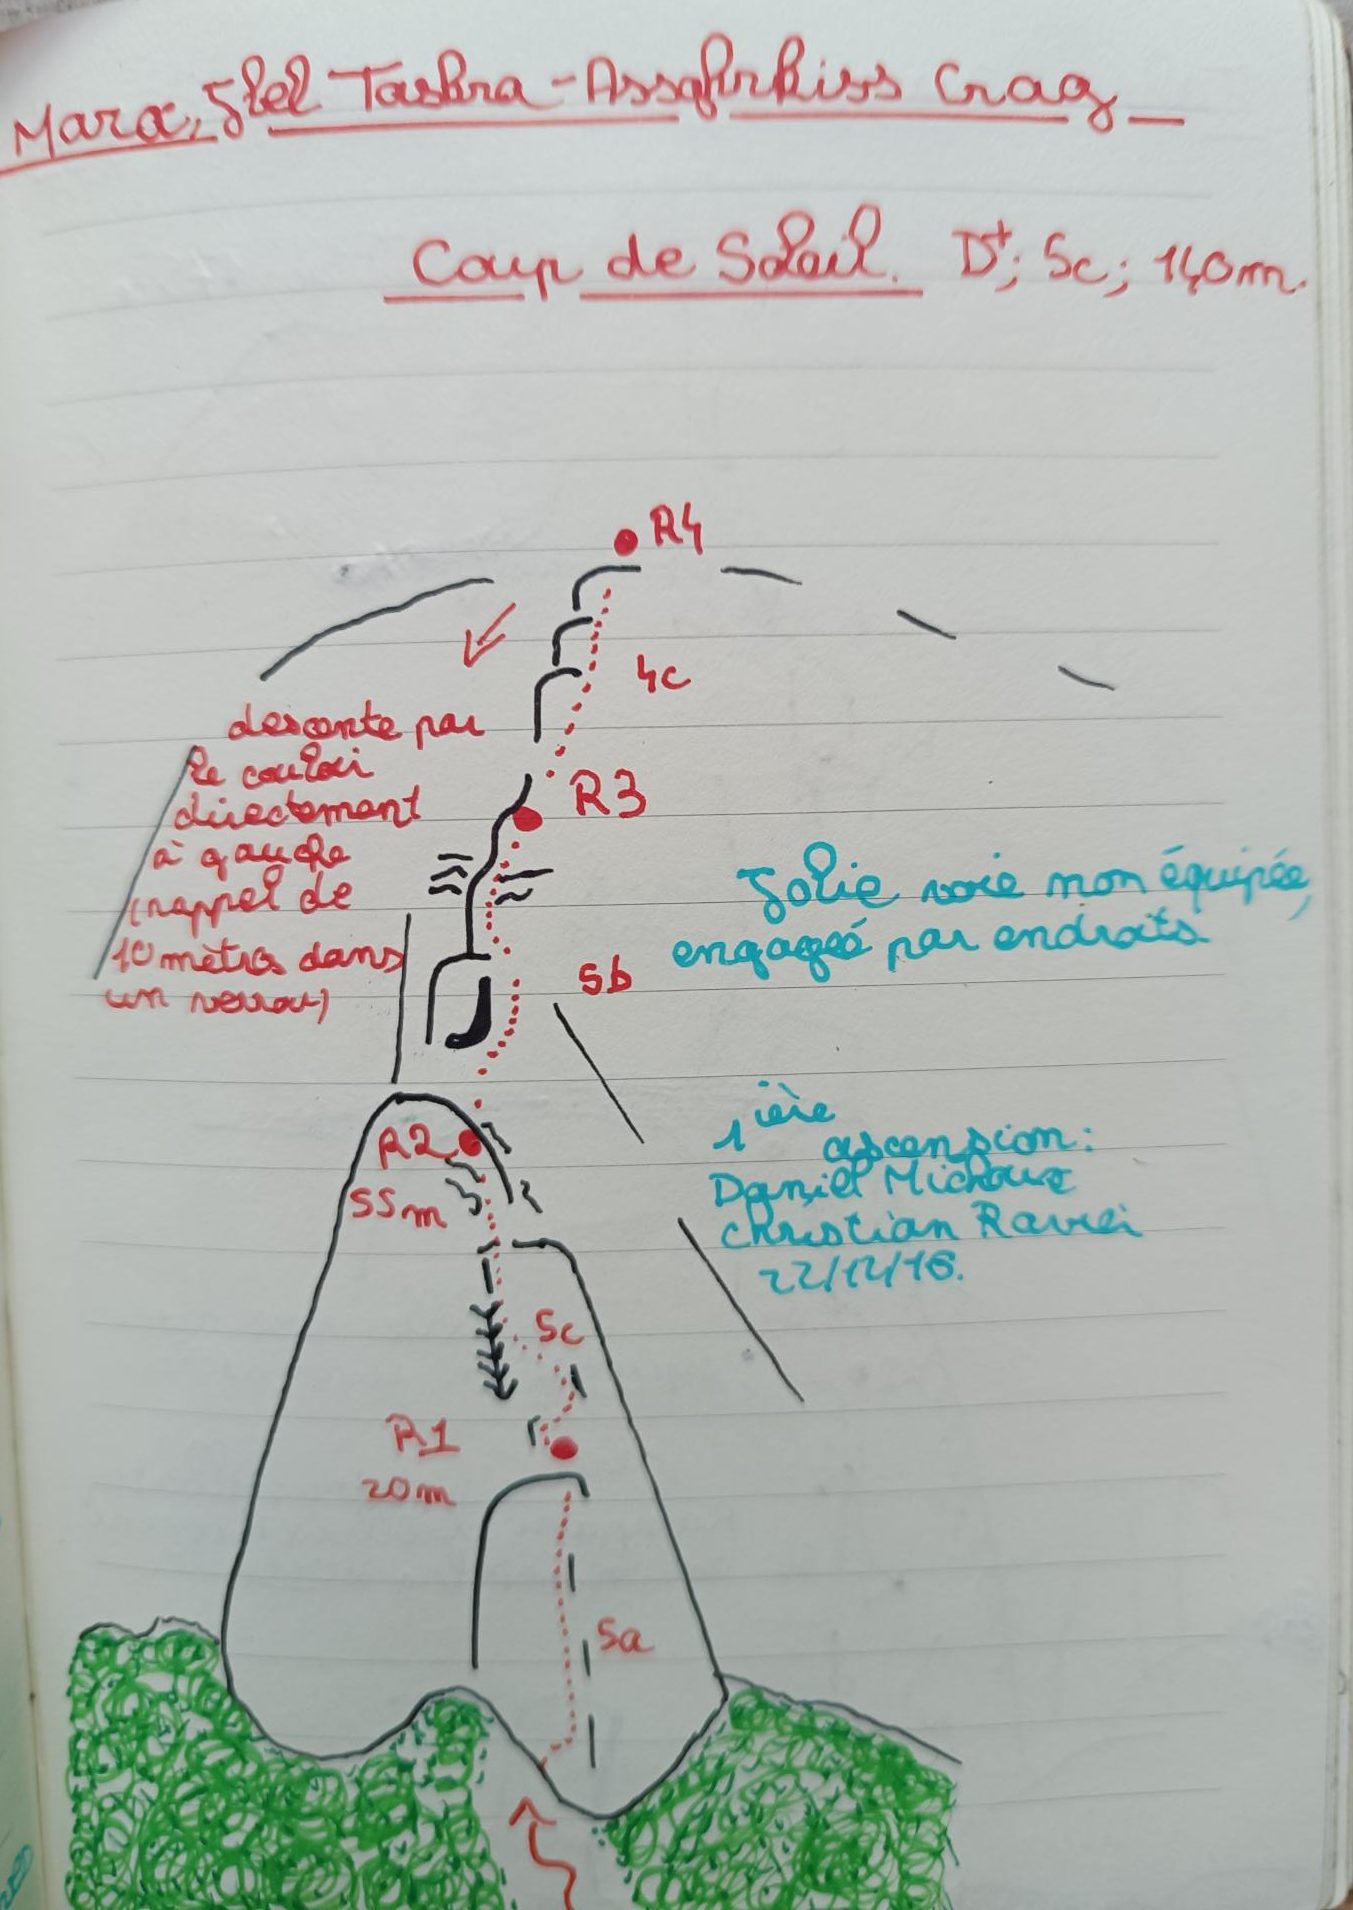 Maroc, Jlel Taskra - Assgfrkiss Crag
Coup de Soleil. D+; 5c; 140m.
R4
4c
descente par
le couloir
directement
à gauche
(rappel de
10 mètres dans
un verrou)
R3
Jolie voie non équipée,
engagée par endroits.
5b
1ière
ascension:
R2
55m
Daniel
Christian Ravier
22/12/16.
5c
R1
20m
5a